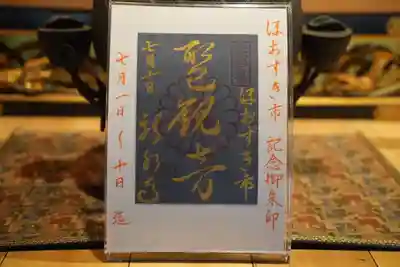 ほおずき市 記念御朱印
ほおずき市
聖観音
七月十日
七月一日〜十日 迄